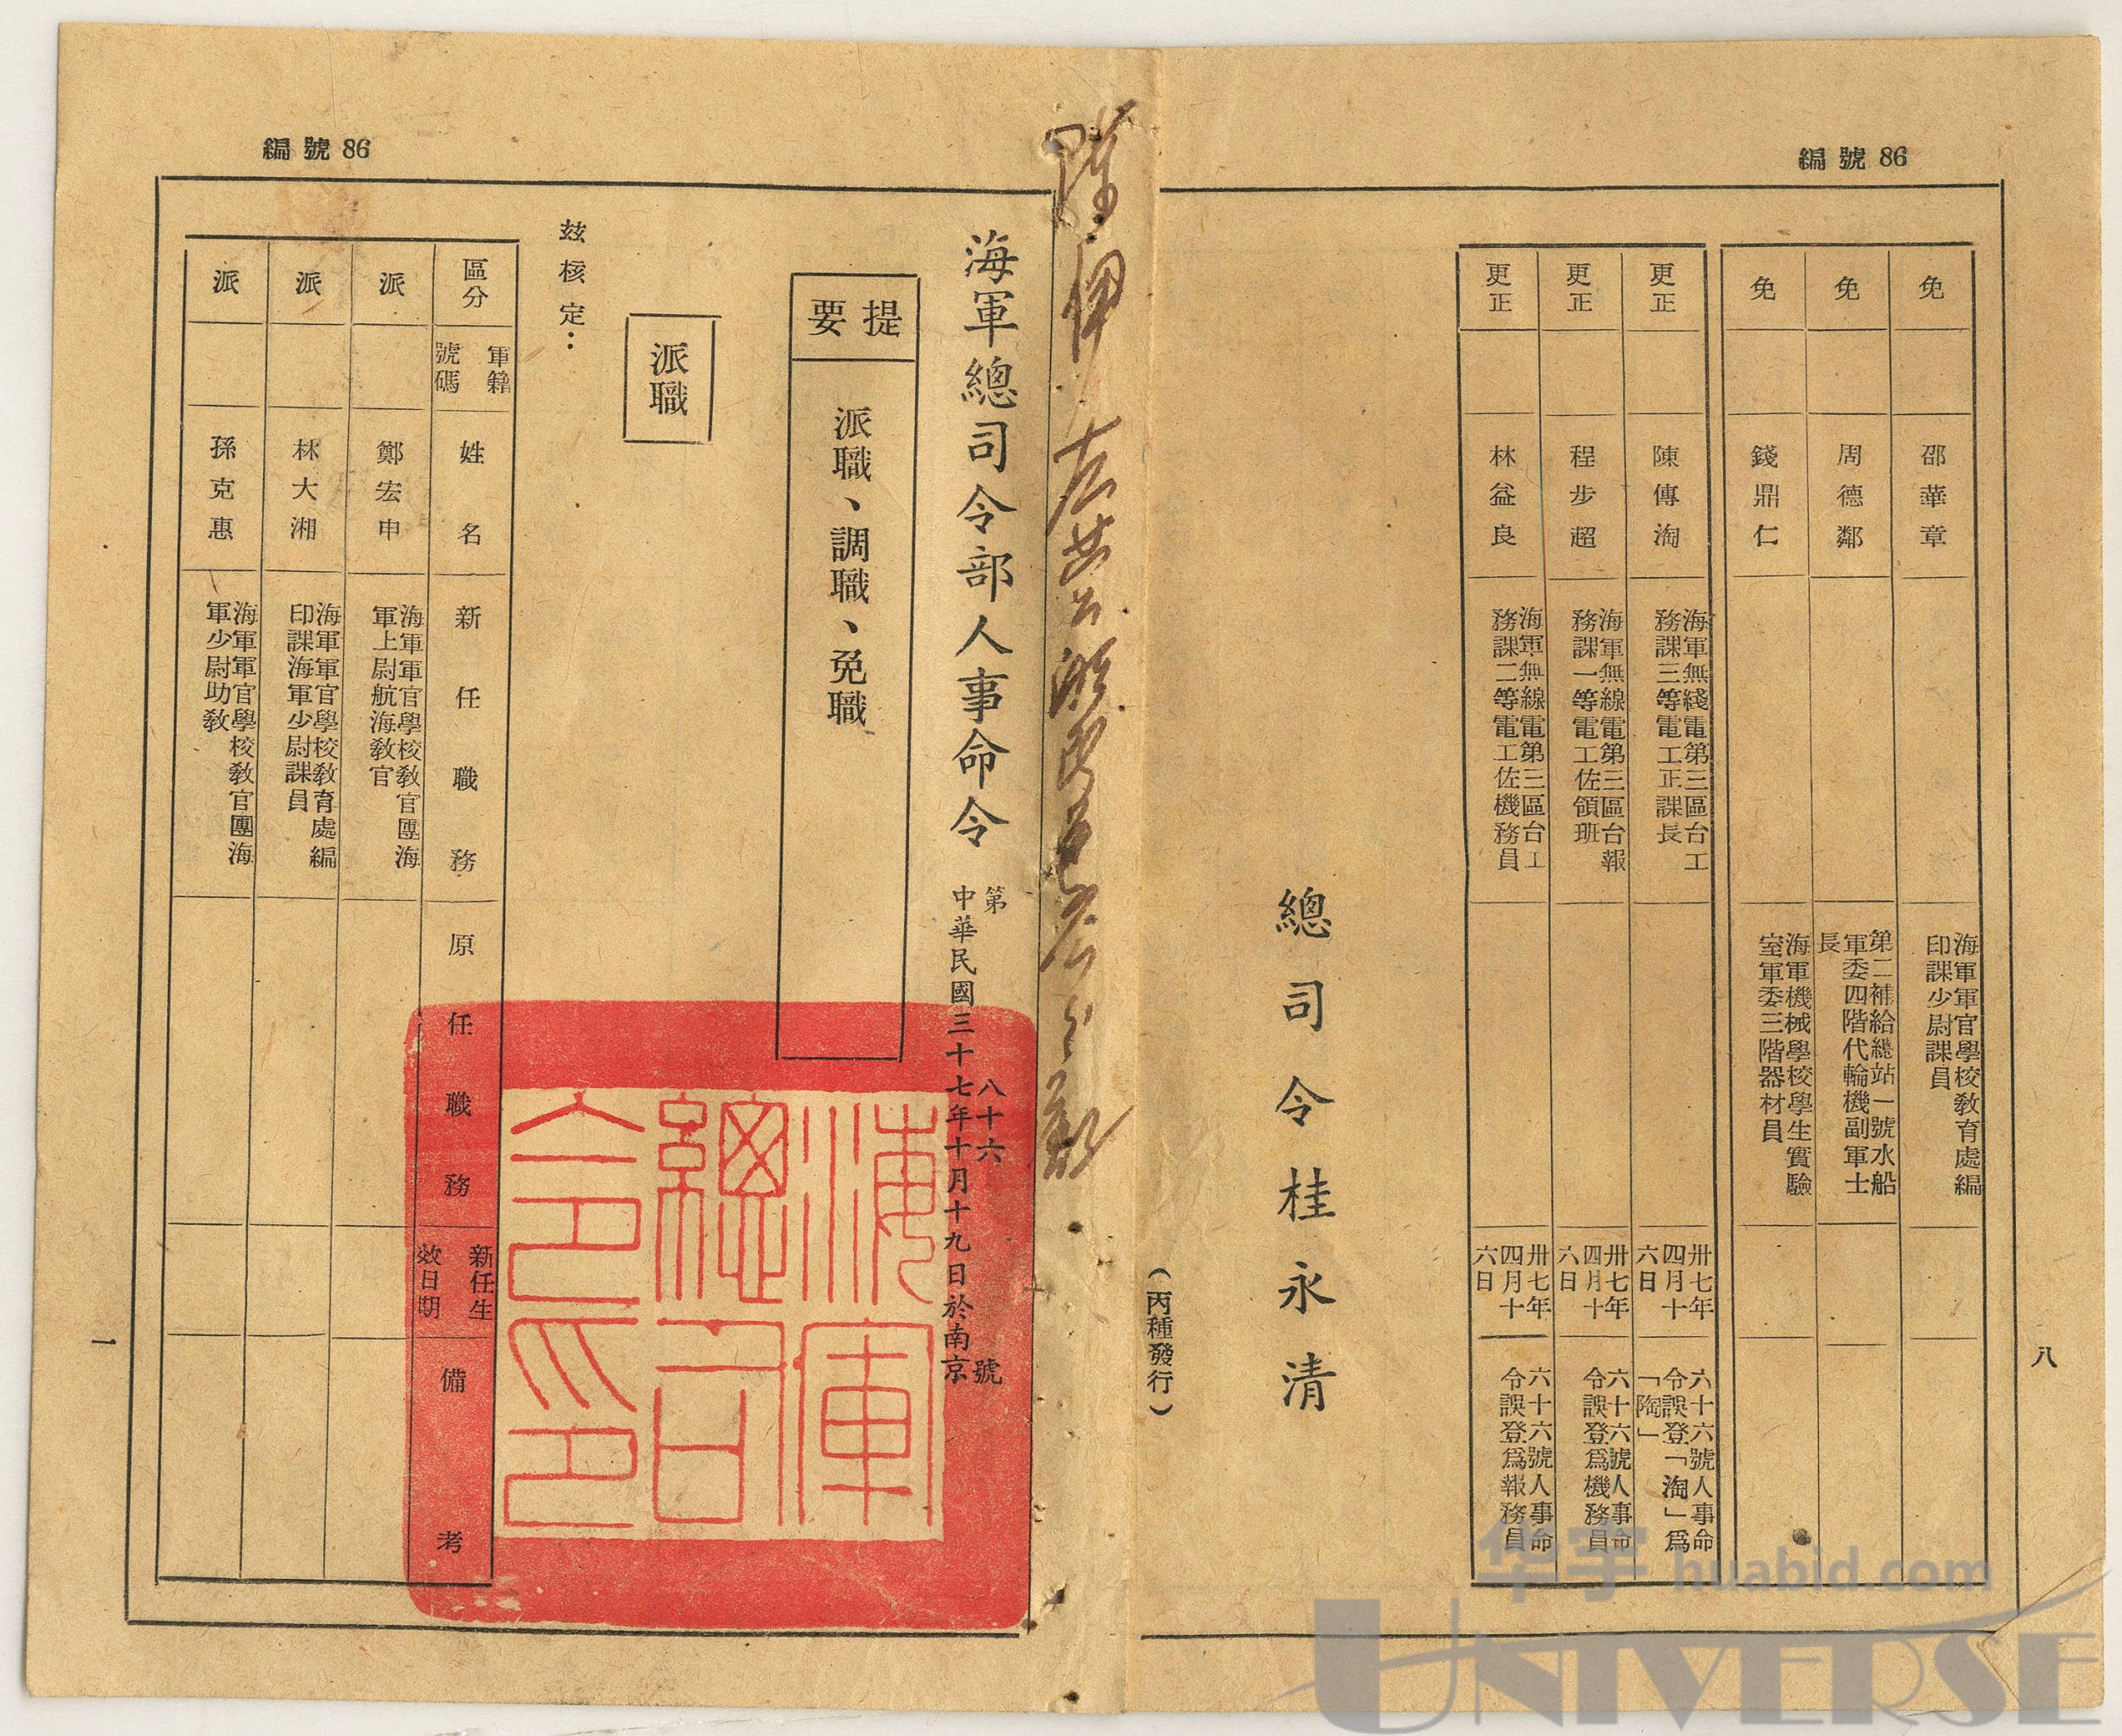 編號 86
八
免
邵華章
海軍軍官學校教育處編
印課少尉課員
免
周德鄰
第二補給總站一號水船
軍委四階代輪機副軍士
長
免
錢鼎仁
海軍機械學校學生實驗
室軍委三階器材員
更正
陳傳淘
海軍無綫電第三區台工
務課三等電工正課長
卅七年
四月十
六日
六十六號人事命
令誤登「淘」爲
「陶」
更正
程步超
海軍無線電第三區台報
務課一等電工佐領班
卅七年
四月十
六日
六十六號人事命
令誤登爲機務員
更正
林益良
海軍無線電第三區台工
務課二等電工佐機務員
卅七年
四月十
六日
六十六號人事命
令誤登爲報務員
總司令桂永清
(丙種發行)
編號 86
海軍總司令部人事命令
第 八十六 號
中華民國三十七年十月十九日於南京
提要
派職、調職、免職
派職
兹核定:
區分
軍籍
號碼
姓名
新任職務
原任職務
新任生
效日期
備考
派
鄭宏申
海軍軍官學校教官團海
軍上尉航海教官
派
林大湘
海軍軍官學校教育處編
印課海軍少尉課員
派
孫克惠
海軍軍官學校教官團海
軍少尉助教
一
海軍
總司
令印
华宇 huabid.com
UNIVERSE